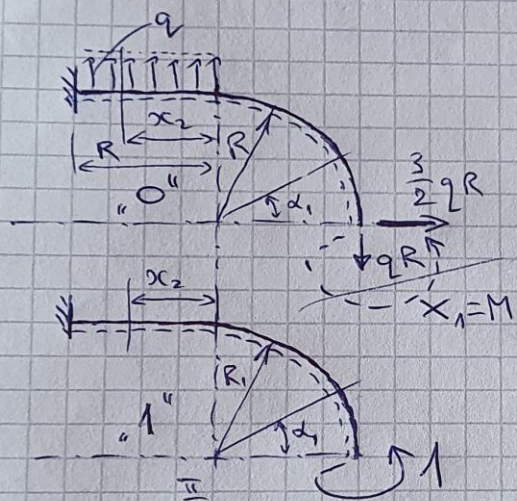 q
x₂
R
R
„0"
α₁
3/2 qR
qR
X₁=M
x₂
R₁
„1"
α₁
1
II